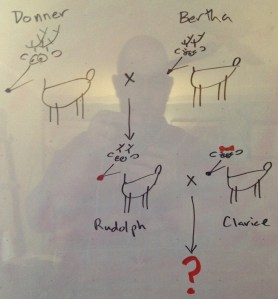 Donner Bertha
x
Rudolph x Clarice
?